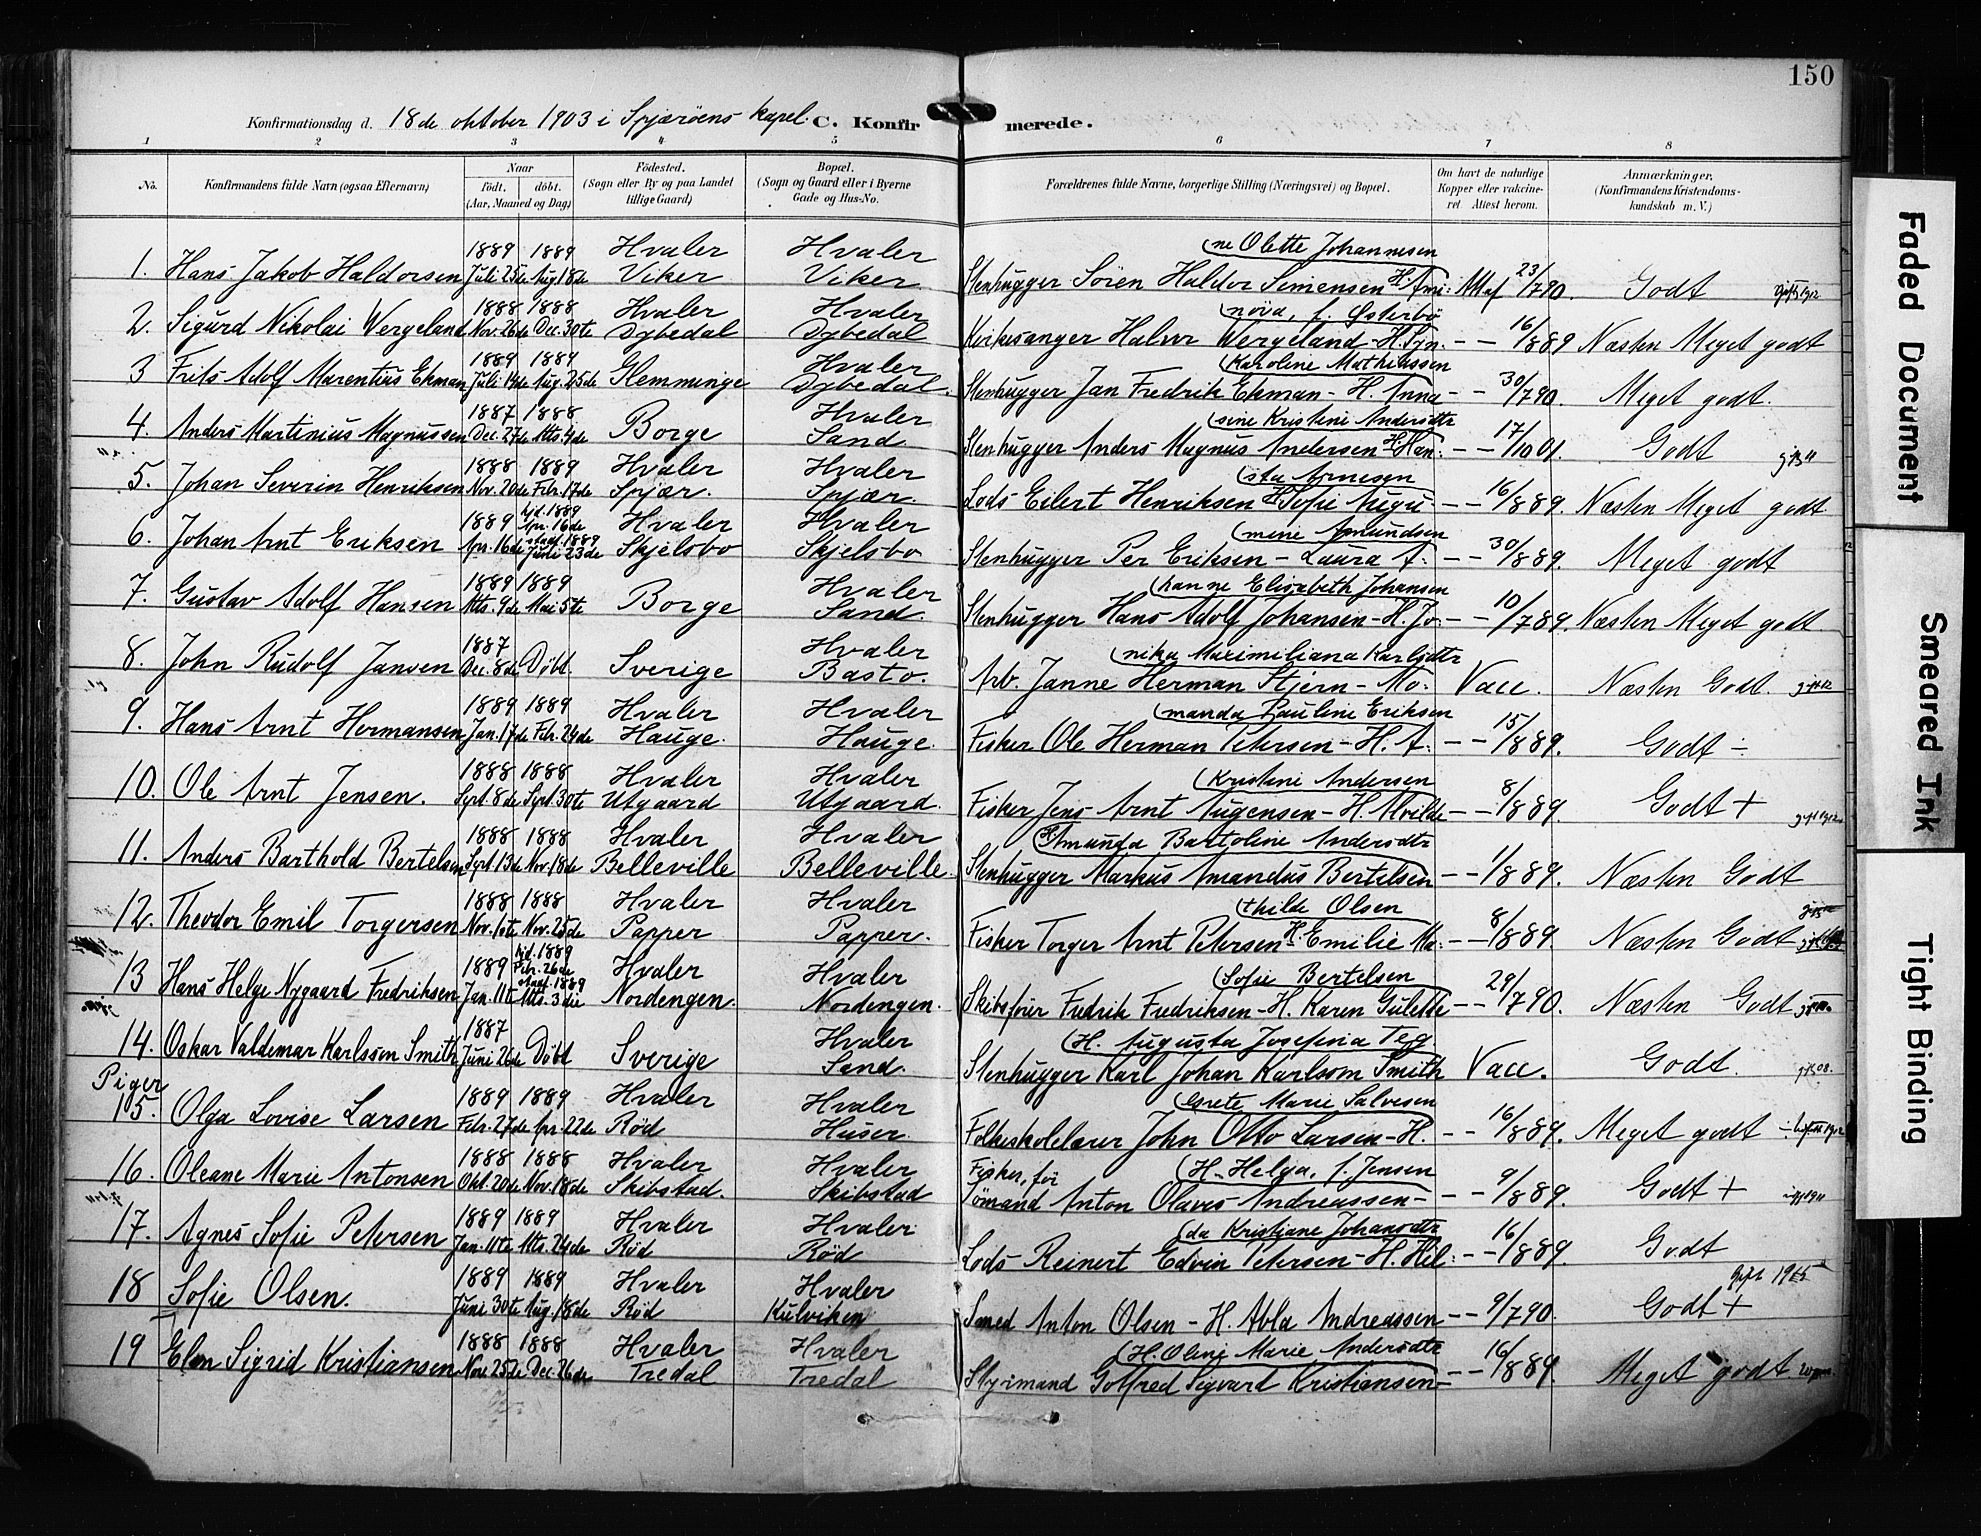 150
Konfirmationsdag d. 18de oktober 1903 i Spjærøens kapel. C. Konfirmerede.
1 2 3 4 5 6 7 8
No. Konfirmandens fulde Navn (ogsaa Efternavn) Naar født. døbt. (Aar, Maaned og Dag) Fødested. (Sogn eller By og paa Landet tillige Gaard) Bopæl. (Sogn og Gaard eller i Byerne Gade og Hus-No. Forældrenes fulde Navne, borgerlige Stilling (Næringsvei) og Bopæl. Om havt de naturlige Kopper eller vakcineret. Attest herom. Anmærkninger. (Konfirmandens Kristendomskundskab m. V.)
1889 1889 Hvaler Hvaler (ne Olette Johannesen
1. Hans Jakob Haldorsen Juli 25de Aug 18de Viker Viker Stenhugger Sören Haldor Simensen H. Ami: Att af 23/7 90. Godt gift 1912
1888 1888 Hvaler Hvaler (nova, f. Østerbö
2. Sigurd Nikolai Wergeland Nov. 26de Dec. 30te Dybedal Dybedal Kirkesanger Halvor Wergeland - H. Syn. - - 16/8 89 Næsten Meget godt
1889 1889 Hvaler (Karoline Mathiassen
3 Frits Adolf Marentius Ekman Juli 14de Aug. 25de Glemminge Dybedal. Stenhugger Jan Fredrik Ekman - H. Anna - - 30/7 90. Meget godt.
1887 1888 Hvaler (sine Kristine Andersdtr
4. Anders Martinius Magnussen Dec. 27de Mts. 4de Borge Sand Stenhugger Anders Magnus Andersen H. Han: - - 17/10 01. Godt
1888 1889 Hvaler Hvaler (sta Arnesen
5. Johan Severin Henriksen Nov. 20de Febr. 17de Spjær. Spjær. Lods Eilert Henriksen H. Sofie Augu: - - 16/8 89. Næsten Meget godt
1889 hjd. 1889 Apr. 16de Hvaler Hvaler (mine Amundsen
6. Johan Arnt Eriksen Apr. 16de stadf. 1889 Juli 23de Skjelsbo Skjelsbo Stenhugger Per Eriksen - Laura A: - - 30/8 89. Meget godt
1889 1889 Hvaler (hanne Elisabeth Johansen
7. Gustav Adolf Hansen Mts. 9de Mai 5te Borge Sand. Stenhugger Hans Adolf Johansen - H. Jo: - - 10/7 89. Næsten Meget godt
1887 Hvaler (nika Maximiliana Karlsdtr
8. John Rudolf Jansen Dec. 8de Döbt. Sverige Bastö. Arb. Janne Herman Stjern - Mo: Vacc. Næsten Godt.
1889 1889 Hvaler Hvaler (manda Pauline Eriksen
9. Hans Arnt Hermansen Jan. 17de Febr. 24de Hauge. Hauge. Fisker Ole Herman Petersen - H. A: - - 15/8 89. Godt ÷
1888 1888 Hvaler Hvaler (Kristine Andersen
10. Ole Arnt Jensen. Sept. 8de Sept 30te Utgaard Utgaard. Fisker Jens Arnt Augensen - H. Alvilde - - 8/8 89. Godt +
1888 1888 Hvaler Hvaler (H. Amunda Bartoline Andersdtr
11. Anders Barthold Bertelsen Sept 13de Nov. 18de Belleville Belleville. Stenhugger Markus Amandus Bertelsen - - 1/8 89. Næsten Godt
1888 1888 Hvaler Hvaler (thilde Olsen
12. Theodor Emil Torgersen Nov. 1ste Nov. 25de Papper Papper. Fisker Torger Arnt Petersen H. Emilie Ma: - - 8/8 89. Næsten Godt
1889 hjd. 1889 Febr. 26de Hvaler Hvaler (Sofie Bertelsen
13 Hans Helge Nygaard Fredriksen Jan. 11te stadf. 1889 Mts. 3die Nordengen. Nordengen. Skibsförer Fredrik Fredriksen - H. Karen Gulette - - 29/7 90. Næsten Godt
1887 Hvaler (H. Augusta Josefina Teg.
14. Oskar Valdemar Karlsson Smith Juni 26de Döbt Sverige Sand. Stenhugger Karl Johan Karlsson Smith Vacc. Godt.
Piger 1889 1889 Hvaler Hvaler (Grete Marie Salvesen
15. Olga Lovise Larsen Febr. 27de Apr. 22de Röd Huser. Folkeskolelærer John Otto Larsen - H. - - 16/8 89. Meget godt ÷
1888 1888 Hvaler Hvaler Fisker, för (H. Helga, f. Jensen
16. Oleane Marie Antonsen Okt. 20de Nov. 18de Skibstad. Skibstad Sömand Anton Olaves Andreassen - - - 9/8 89. Godt +
1889 1889 Hvaler Hvaler (da Kristiane Johansdtr
17. Agnes Sofie Petersen Jan. 11te Mts. 24de Röd Röd Lods Reinert Edvin Petersen - H. Hil: - - 16/8 89. Godt
1889 1889 Hvaler Hvaler Gift 1915
18 Sofie Olsen. Juni 30te Aug. 18de Röd Kulviken Smed Anton Olsen - H. Abla Andreassen - - 9/7 90. Godt +
1888 1888 Hvaler Hvaler (H. Oline Marie Andersdtr
19 Elen Sigrid Kristiansen Nov. 25de Dec. 26de Tredal Tredal Styrmand Gotfred Sigvard Kristiansen - - - 16/8 89. Meget godt
Faded Document
Smeared Ink
Tight Binding